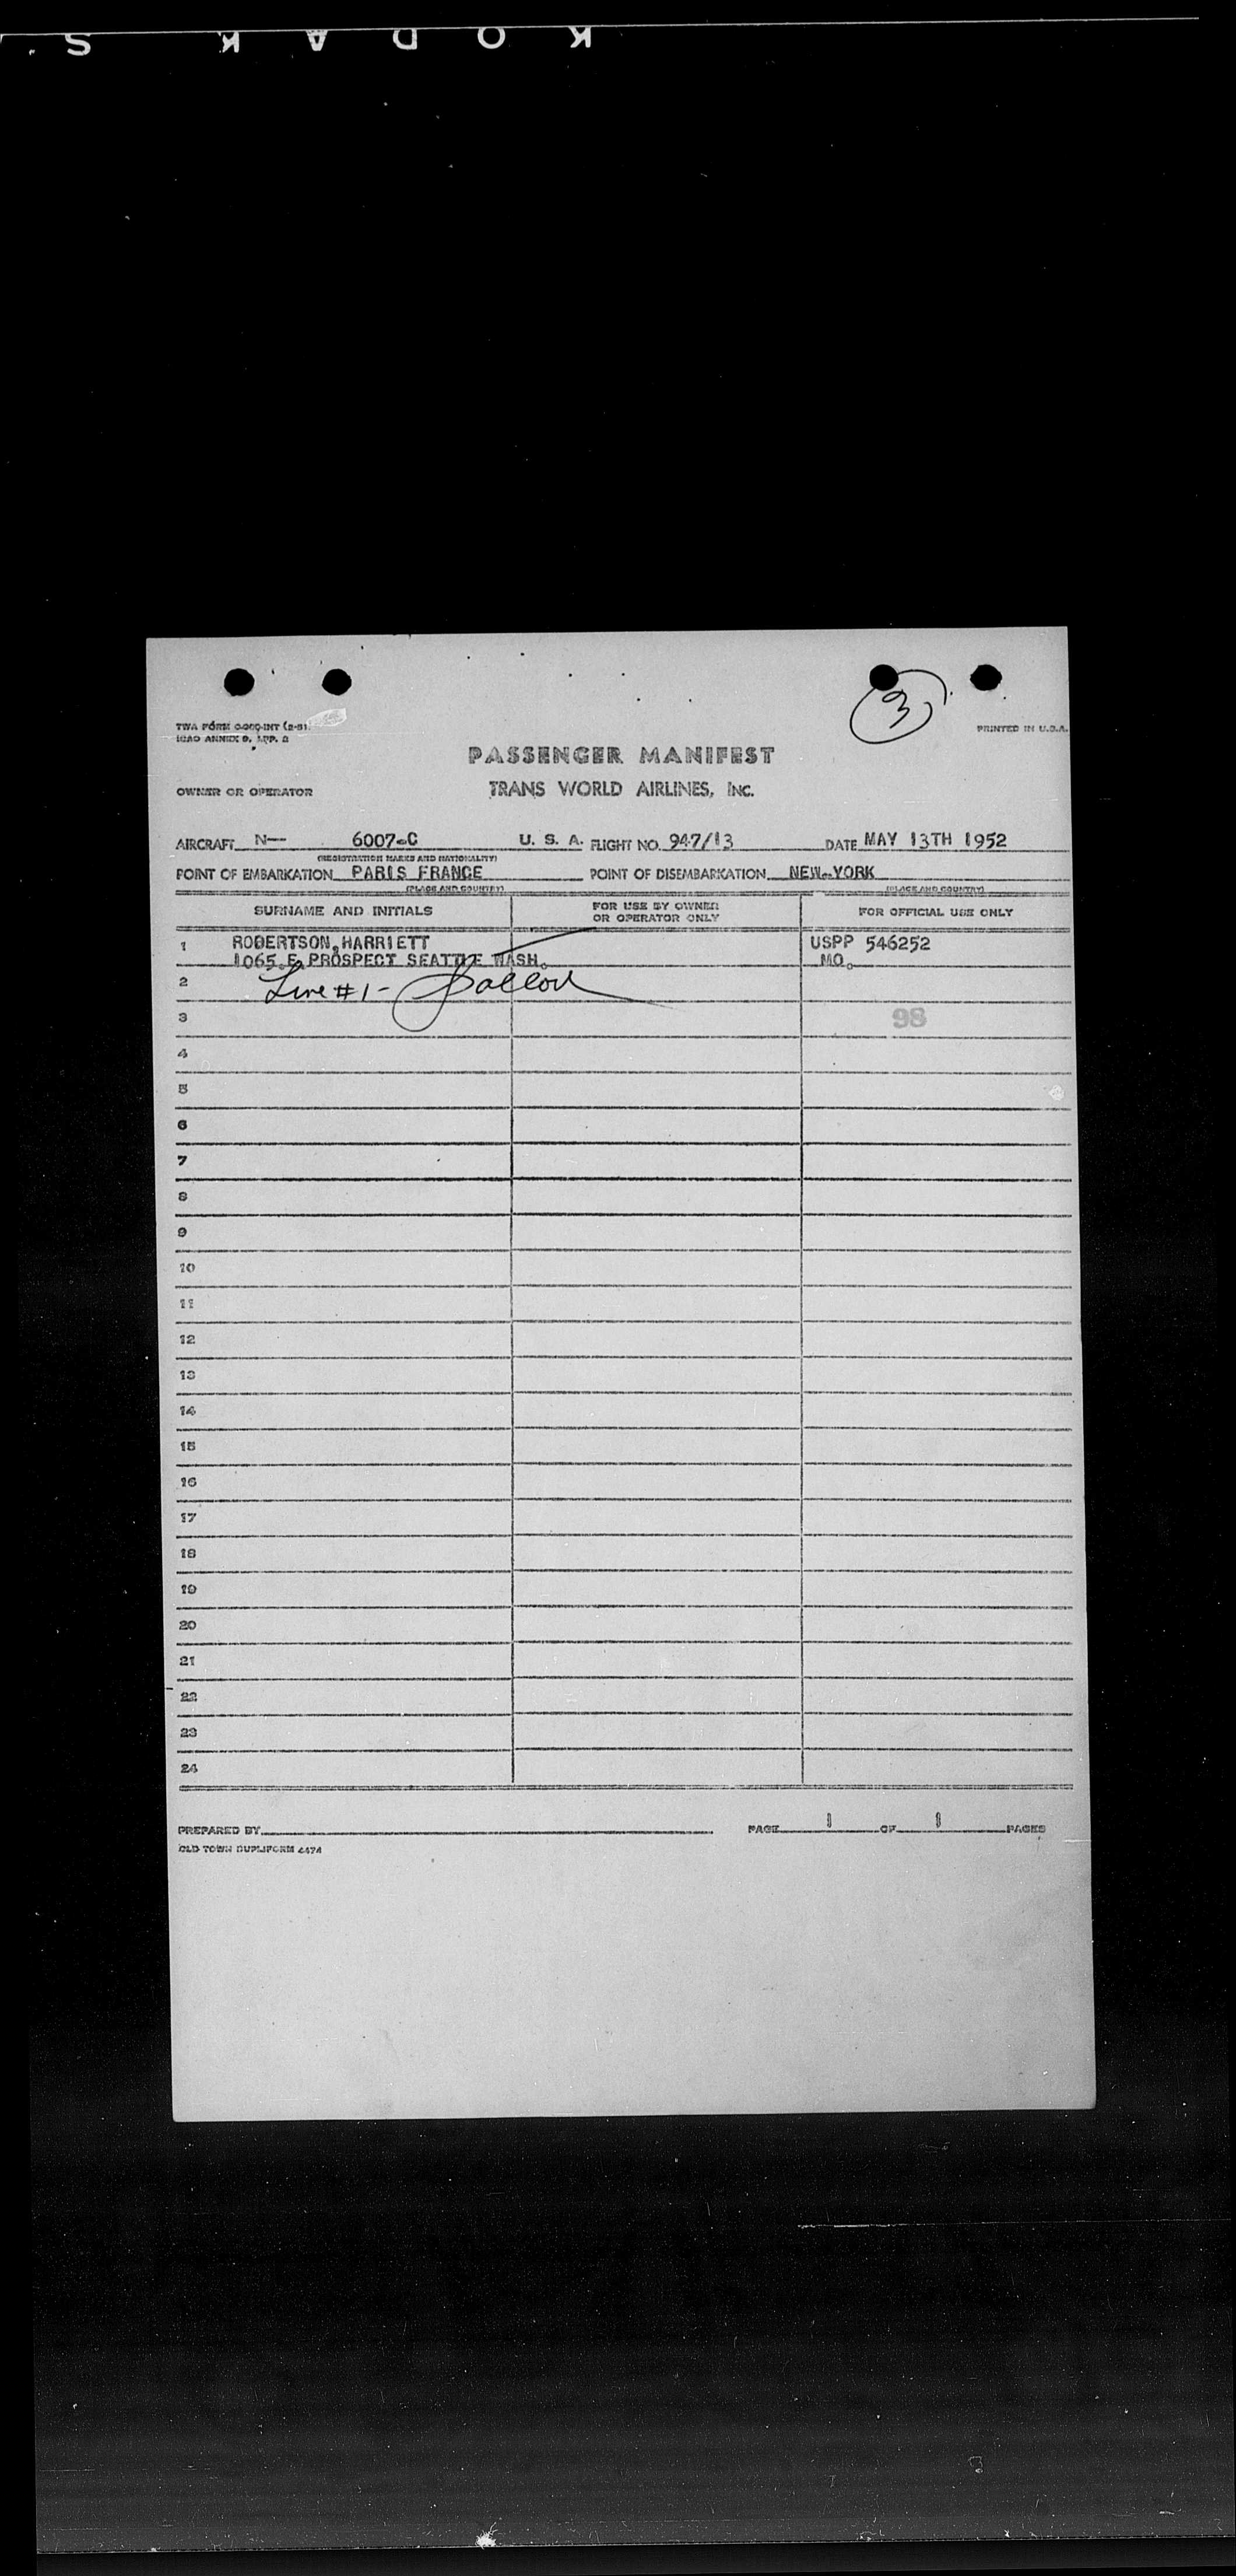 KODAK S
3
TWA FORM
ICAO ANNEX 9, APP. 2
PRINTED IN U.S.A.
PASSENGER MANIFEST
OWNER OR OPERATOR TRANS WORLD AIRLINES, INC.
AIRCRAFT N-- 6007-C U. S. A. FLIGHT NO. 947/13 DATE MAY 13TH 1952
(REGISTRATION MARKS AND NATIONALITY)
POINT OF EMBARKATION PARIS FRANCE POINT OF DISEMBARKATION NEW-YORK
(PLACE AND COUNTRY) (PLACE AND COUNTRY)
SURNAME AND INITIALS FOR USE BY OWNER OR OPERATOR ONLY FOR OFFICIAL USE ONLY
1 ROBERTSON,HARRIETT USPP 546252
1065.E.PROSPECT SEATTLE WASH. MO.
2 Line #1-
3 98
4
5
6
7
8
9
10
11
12
13
14
15
16
17
18
19
20
21
22
23
24
PREPARED BY PAGE 1 OF 1 PAGES
OLD TOWN DUPLIFORM 4474